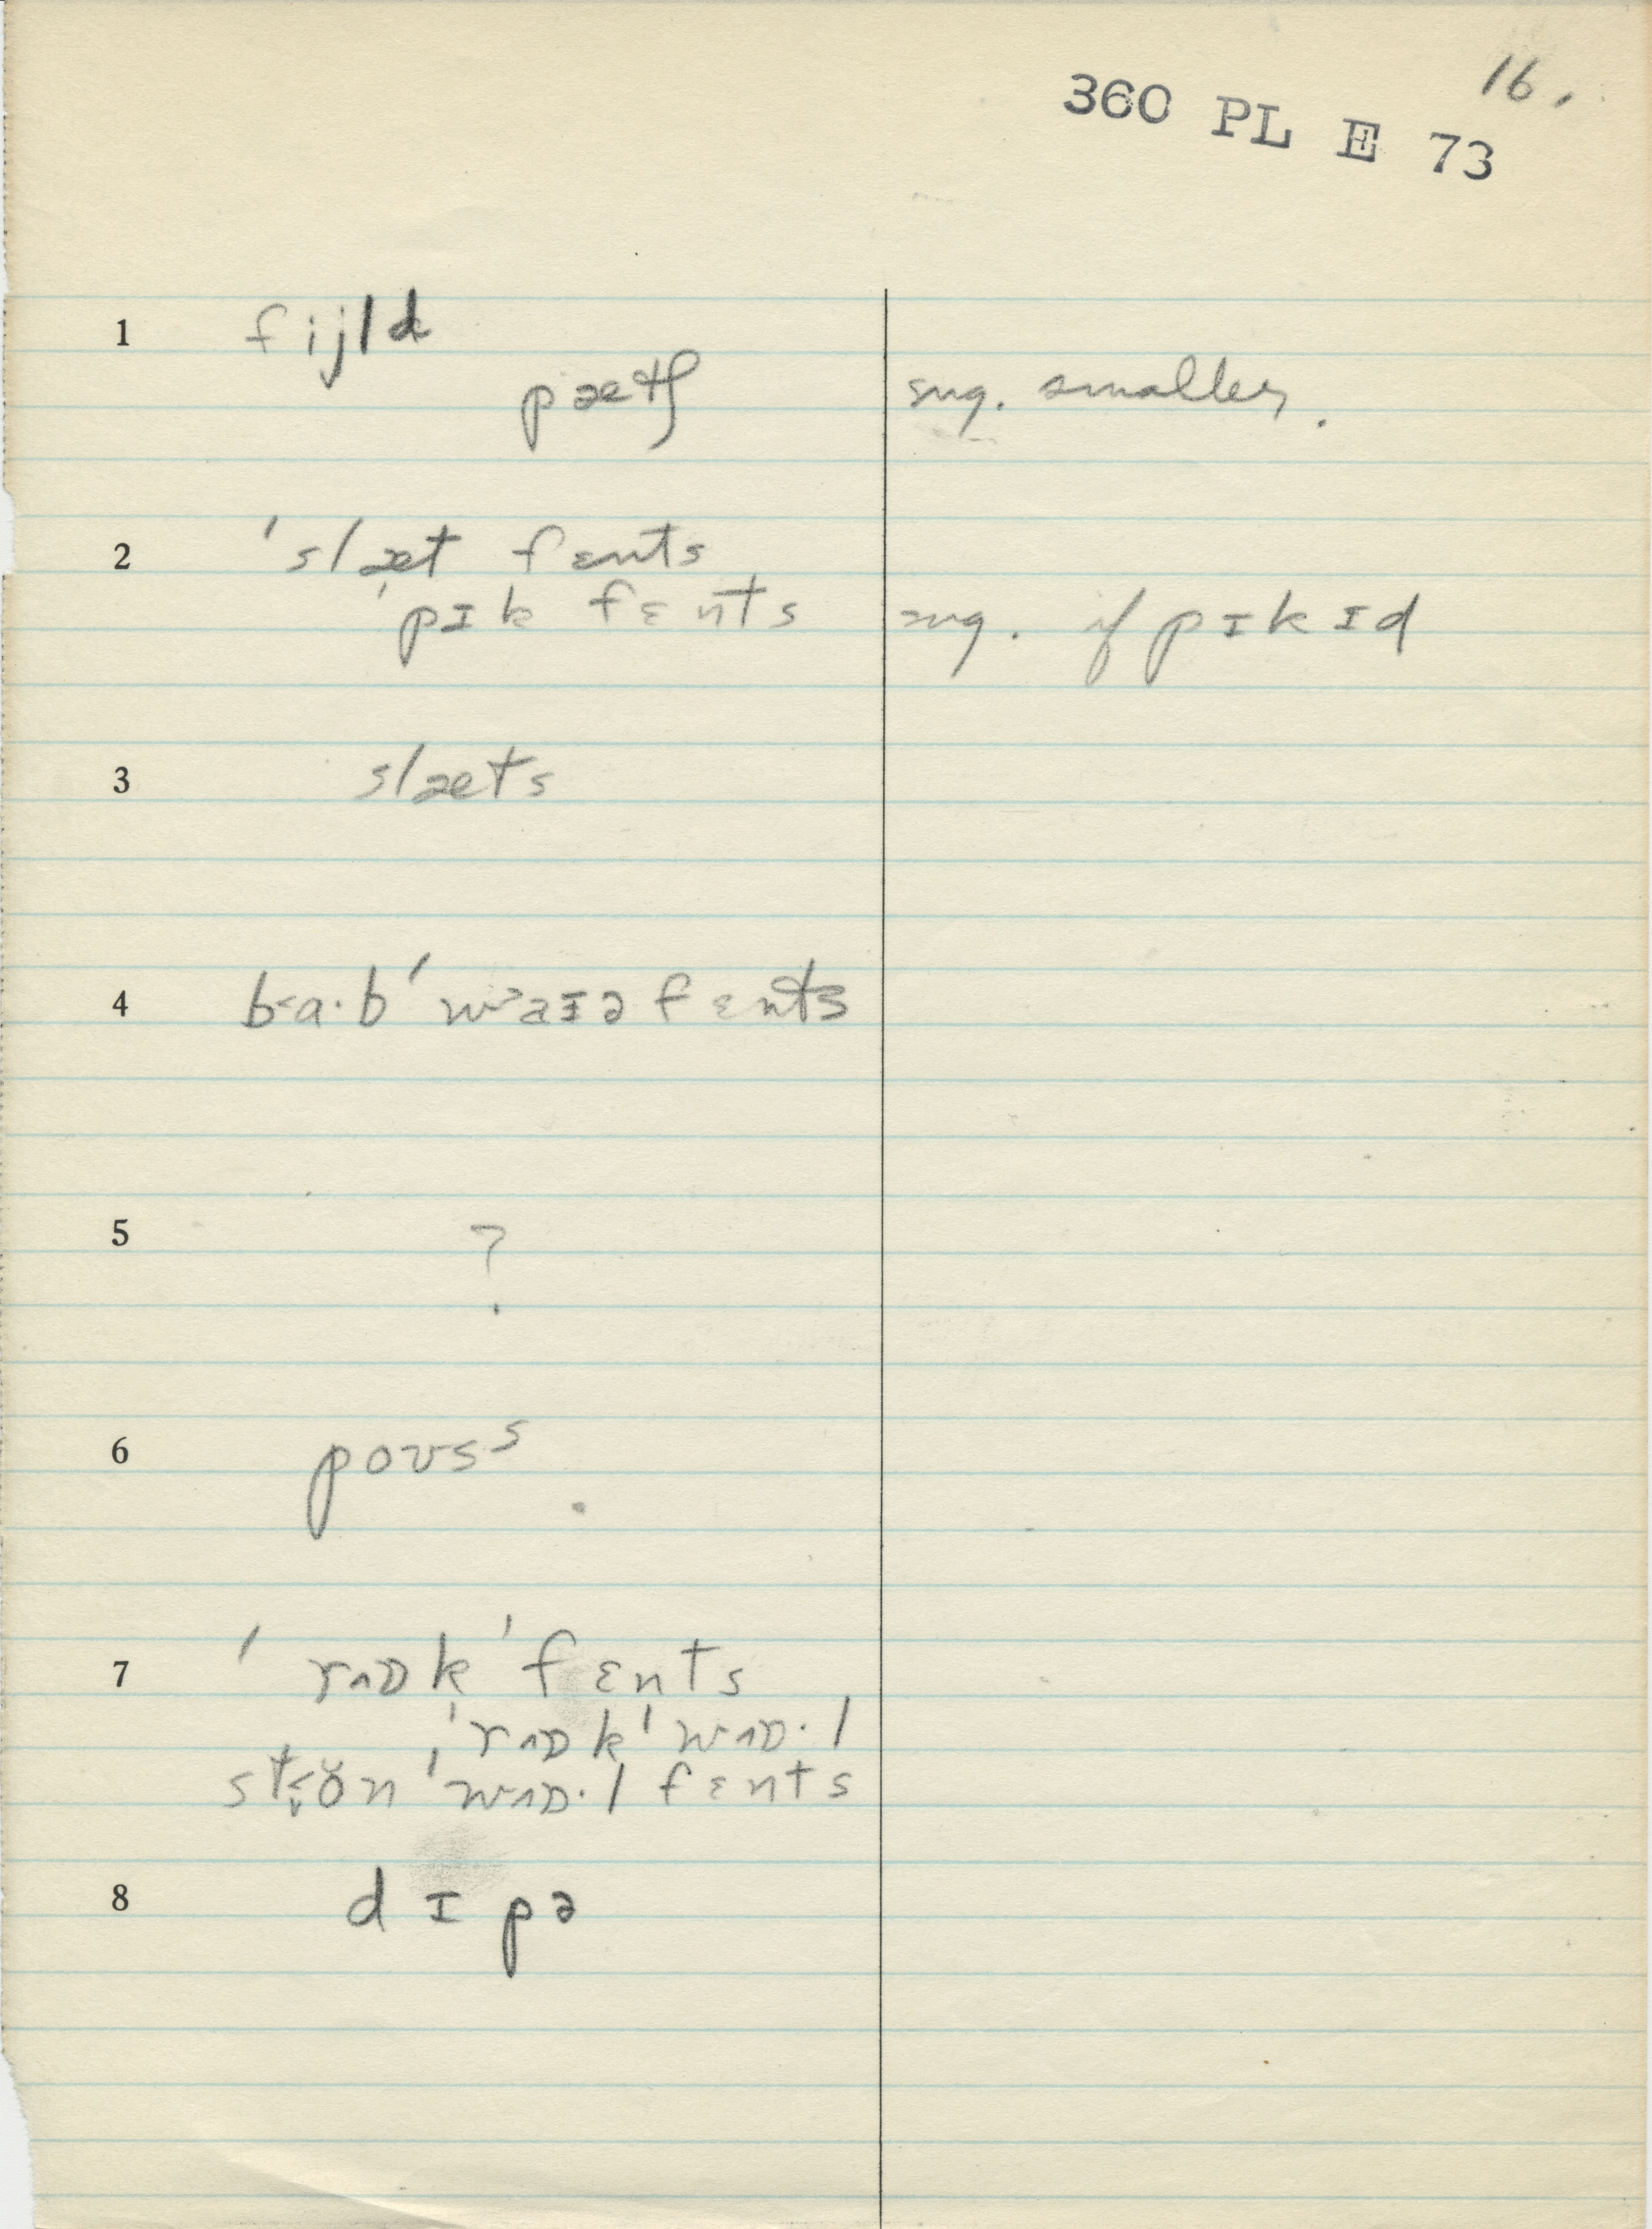 16.
360 PL E 73
1 fijld
pætʃ sug. smaller.
2 'slæt fɛnts
'pɪk fɛnts sug. if pɪkɪd
3 slæts
4 b<a·b'w>aɪə fɛnts
5 ?
6 poʊsˢ
7 'rʌɒk'fɛnts
'rʌɒk'wʌɒ·l
'wʌɒ·l fɛnts
8 dɪpə